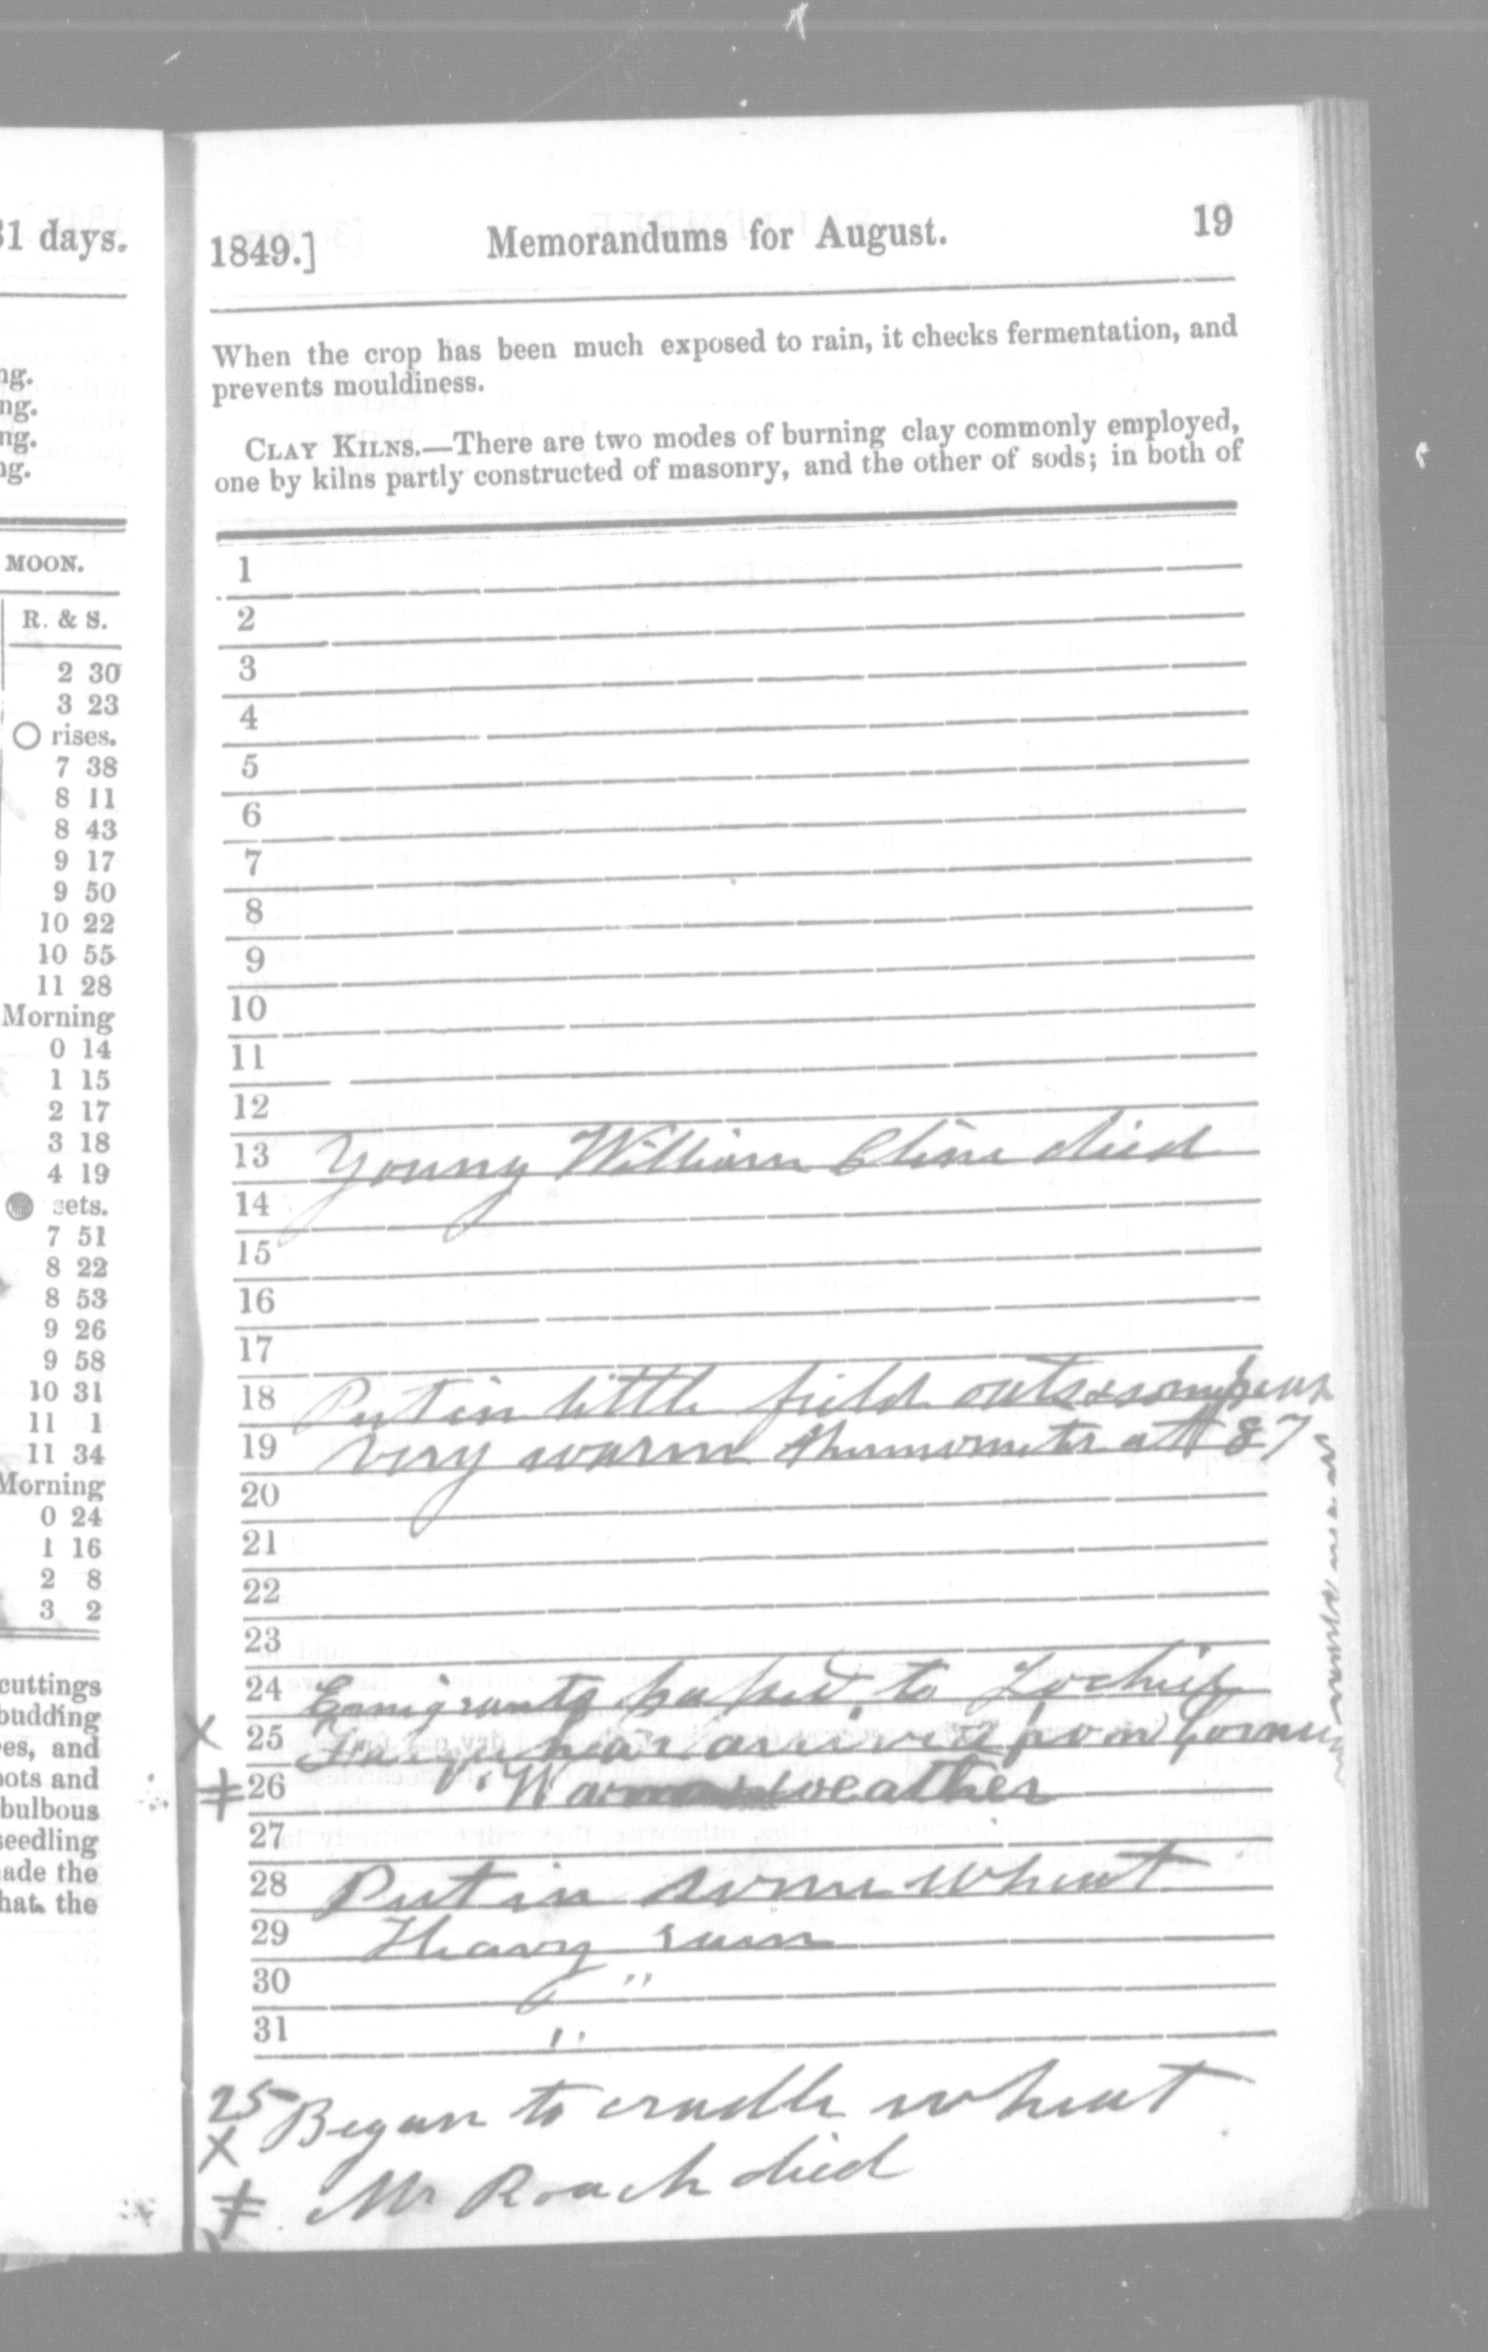 31 days.
ng.
ng.
ng.
g.
MOON.
R. & S.
2 30
3 23
rises.
7 38
8 11
8 43
9 17
9 50
10 22
10 55
11 28
Morning
0 14
1 15
2 17
3 18
4 19
sets.
7 51
8 22
8 53
9 26
9 58
10 31
11 1
11 34
Morning
0 24
1 16
2 8
3 2
cuttings
budding
es, and
oots and
bulbous
seedling
made the
that the
1849.] Memorandums for August. 19
When the crop has been much exposed to rain, it checks fermentation, and
prevents mouldiness.
CLAY KILNS.—There are two modes of burning clay commonly employed,
one by kilns partly constructed of masonry, and the other of sods; in both of
1
2
3
4
5
6
7
8
9
10
11
12
13 Young William Cline died
14
15
16
17
18 Put in little field oats & some peas
19 Very warm thermometer at 87
20
21
22
23
24 Emigrants passed to Lochiel
X 25 Farquhar arrived from
‡ 26 V. Warm weather
27
28 Put in some wheat
29 Heavy rain
30 "
31 "
25 Began to cradle wheat
X
‡ Mr Roach died